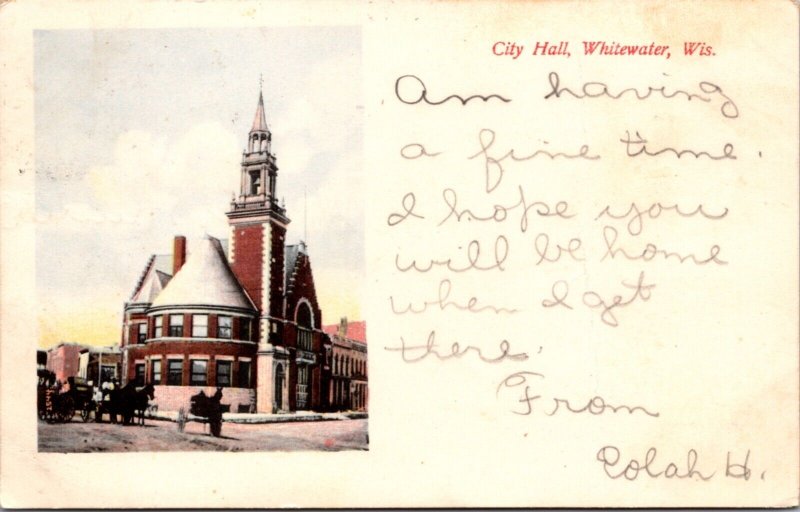 City Hall, Whitewater, Wis.
Am having
a fine time.
I hope you
will be home
when I get
there.
From
Eolah H.